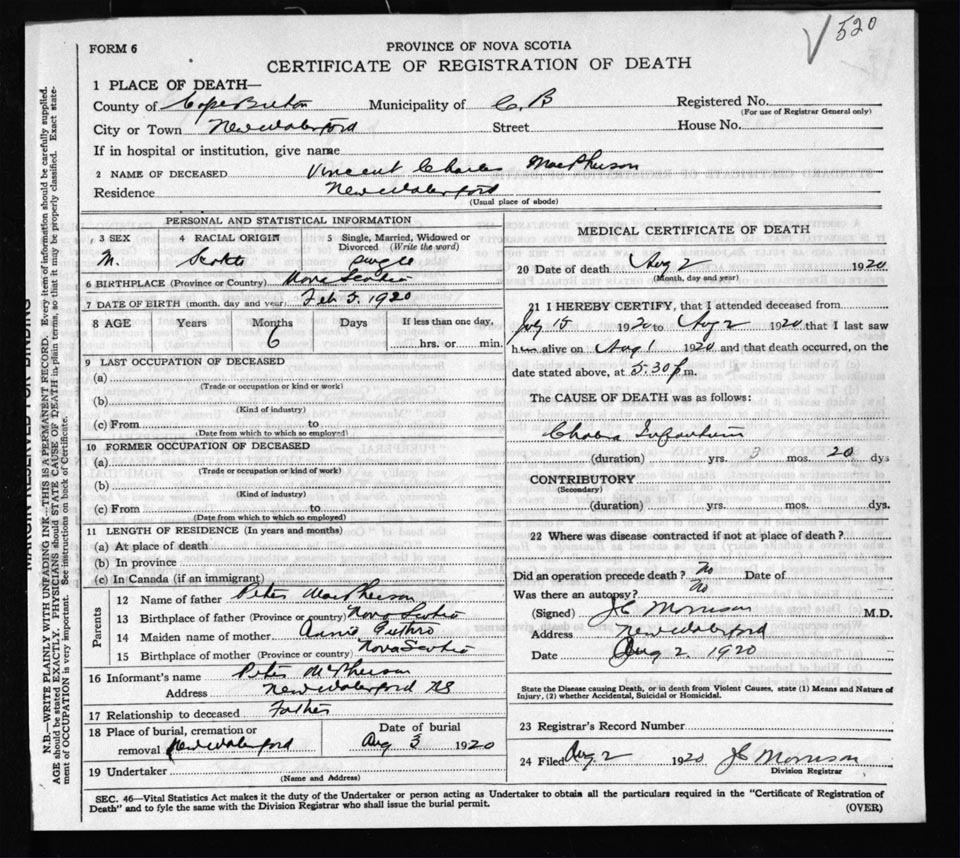 520
FORM 6
PROVINCE OF NOVA SCOTIA
CERTIFICATE OF REGISTRATION OF DEATH
1 PLACE OF DEATH—
County of Cape Breton Municipality of C. B Registered No.
(For use of Registrar General only)
City or Town New Waterford Street House No.
If in hospital or institution, give name
2 NAME OF DECEASED Vincent Charles MacPherson
Residence New Waterford
(Usual place of abode)
PERSONAL AND STATISTICAL INFORMATION
3 SEX 4 RACIAL ORIGIN 5 Single, Married, Widowed or Divorced (Write the word)
M. Scotch Single
6 BIRTHPLACE (Province or Country) Nova Scotia
7 DATE OF BIRTH (month, day and year) Feb 5. 1920
8 AGE Years Months Days If less than one day,
6 hrs. or min.
9 LAST OCCUPATION OF DECEASED
(a)
(Trade or occupation or kind of work)
(b)
(Kind of industry)
(c) From to
(Date from which to which so employed)
10 FORMER OCCUPATION OF DECEASED
(a)
(Trade or occupation or kind of work)
(b)
(Kind of industry)
(c) From to
(Date from which to which so employed)
11 LENGTH OF RESIDENCE (In years and months)
(a) At place of death
(b) In province
(c) In Canada (if an immigrant)
Parents
12 Name of father Peter MacPherson
13 Birthplace of father (Province or country) Nova Scotia
14 Maiden name of mother Annie Guthro
15 Birthplace of mother (Province or country) Nova Scotia
16 Informant's name Peter McPherson
Address New Waterford NS
17 Relationship to deceased Father
18 Place of burial, cremation or Date of burial
removal New Waterford Aug 3 1920
19 Undertaker
(Name and Address)
MEDICAL CERTIFICATE OF DEATH
20 Date of death Aug 2 1920
(Month, day and year)
21 I HEREBY CERTIFY, that I attended deceased from
July 15 1920 to Aug 2 1920 that I last saw
him alive on Aug 1 1920 and that death occurred, on the
date stated above, at 5.30 p m.
The CAUSE OF DEATH was as follows:
Cholera Infantum
(duration) yrs. 3 mos. 20 dys
CONTRIBUTORY
(Secondary)
(duration) yrs. mos. dys.
22 Where was disease contracted if not at place of death?
Did an operation precede death? No Date of
Was there an autopsy? No
(Signed) J C Morrison M.D.
Address New Waterford
Date Aug 2. 1920
State the Disease causing Death, or in death from Violent Causes, state (1) Means and Nature of
Injury, (2) whether Accidental, Suicidal or Homicidal.
23 Registrar's Record Number
24 Filed Aug 2 1920 J C Morrison
Division Registrar
SEC. 46—Vital Statistics Act makes it the duty of the Undertaker or person acting as Undertaker to obtain all the particulars required in the "Certificate of Registration of
Death" and to fyle the same with the Division Registrar who shall issue the burial permit.
(OVER)
MARGIN RESERVED FOR BINDING
N.B.—WRITE PLAINLY WITH UNFADING INK—THIS IS A PERMANENT RECORD. Every item of information should be carefully supplied.
AGE should be stated EXACTLY. PHYSICIANS should STATE CAUSE OF DEATH in plain terms, so that it may be properly classified. Exact state-
ment of OCCUPATION is very important. See instructions on back of Certificate.